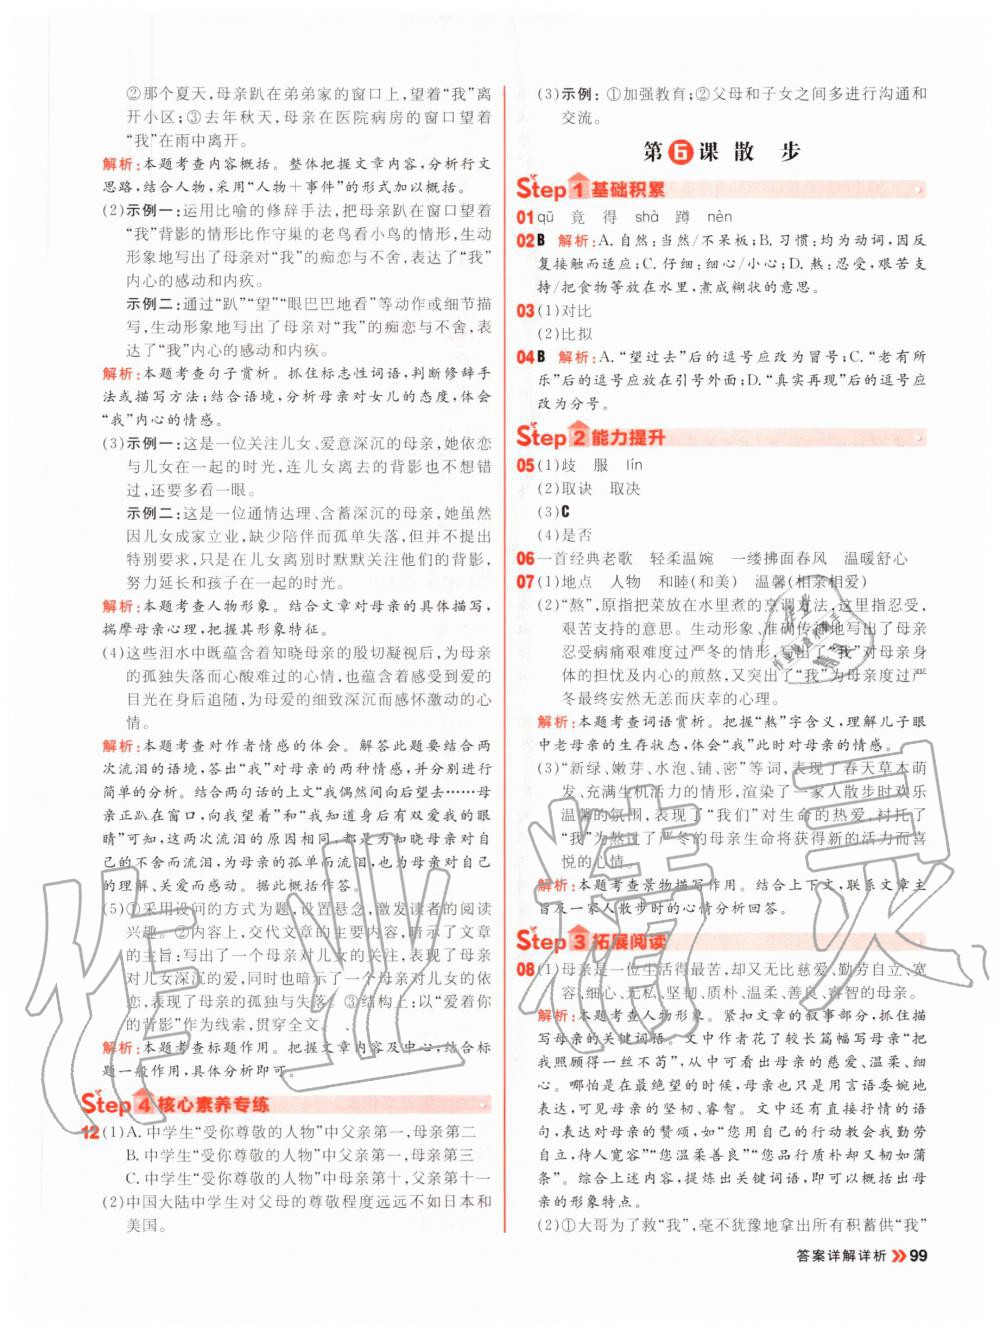 ②那个夏天,母亲趴在弟弟家的窗口上,望着“我”离
开小区;③去年秋天,母亲在医院病房的窗口望着
“我”在雨中离开。
解析:本题考查内容概括。整体把握文章内容,分析行文
思路,结合人物,采用“人物+事件”的形式加以概括。
(2)示例一:运用比喻的修辞手法,把母亲趴在窗口望着
“我”背影的情形比作守巢的老鸟看小鸟的情形,生动
形象地写出了母亲对“我”的痴恋与不舍,表达了“我”
内心的感动和内疚。
示例二:通过“趴”“望”“眼巴巴地看”等动作或细节描
写,生动形象地写出了母亲对“我”的痴恋与不舍,表
达了“我”内心的感动和内疚。
解析:本题考查句子赏析。抓住标志性词语,判断修辞手
法或描写方法;结合语境,分析母亲对女儿的态度,体会
“我”内心的情感。
(3)示例一:这是一位关注儿女、爱意深沉的母亲,她依恋
与儿女在一起的时光,连儿女离去的背影也不想错
过,还要多看一眼。
示例二:这是一位通情达理、含蓄深沉的母亲,她虽然
因儿女成家立业,缺少陪伴而孤单失落,但并不提出
特别要求,只是在儿女离别时默默关注他们的背影,
努力延长和孩子在一起的时光。
解析:本题考查人物形象。结合文章对母亲的具体描写,
揣摩母亲心理,把握其形象特征。
(4)这些泪水中既蕴含着知晓母亲的殷切凝视后,为母亲
的孤独失落而心酸难过的心情,也蕴含着感受到母爱
的目光在身后追随,为母爱的细致深沉而感怀激动的心
情。
解析:本题考查对作者情感的体会。解答此题要结合两
次流泪的语境,答出“我”对母亲的两种情感,并分别进行
简单的分析。结合两句话的上文“我偶然间向后望去……母
亲正趴在窗口,向我望着”和“我知道身后有双爱我的眼
睛”可知,这两次流泪的原因相同,都是为知晓母亲对自
己的不舍而流泪,为母亲的孤单而流泪,也为母亲对自己
的理解、关爱而感动。据此概括作答。
(5)①采用设问的方式为题,设置悬念,激发读者的阅读
兴趣。②内容上,交代文章的主要内容,暗示了文章
的主旨:写出了一个母亲对儿女的关注,表现了母亲
对儿女深沉的爱,同时也暗示了一个母亲对儿女的依
恋,表现了母亲的孤独与失落。③结构上:以“爱着你
的背影”作为线索,贯穿全文。
解析:本题考查标题作用。把握文章内容及中心,结合标
题一般作用,具体分析即可。
Step 4 核心素养专练
12 (1)A.中学生“受你尊敬的人物”中父亲第一,母亲第二
B.中学生“受你尊敬的人物”中父亲第一,母亲第三
C.中学生“受你尊敬的人物”中母亲第十,父亲第十一
(2)中国大陆中学生对父母的尊敬程度远远不如日本和
美国。
(3)示例:①加强教育;②父母和子女之间多进行沟通和
交流。
第6课 散 步
Step 1 基础积累
01 qū 竟 得 shà 蹲 nèn
02 B 解析:A.自然:当然/不呆板;B.习惯:均为动词,因反
复接触而适应;C.仔细:细心/小心;D.熬:忍受,艰苦支
持/把食物等放在水里,煮成糊状的意思。
03 (1)对比
(2)比拟
04 B 解析:A.“望过去”后的逗号应改为冒号;C.“老有所
乐”后的逗号应放在引号外面;D.“真实再现”后的逗号应
改为分号。
Step 2 能力提升
05 (1)歧 服 lín
(2)取诀 取决
(3)C
(4)是否
06 一首经典老歌 轻柔温婉 一缕拂面春风 温暖舒心
07 (1)地点 人物 和睦(和美) 温馨(相亲相爱)
(2)“熬”,原指把菜放在水里煮的烹调方法,这里指忍受,
艰苦支持的意思。生动形象、准确传神地写出了母亲
忍受病痛艰难度过严冬的情形,写出了“我”对母亲身
体的担忧及内心的煎熬,又突出了“我”为母亲度过严
冬最终安然无恙而庆幸的心理。
解析:本题考查词语赏析。把握“熬”字含义,理解儿子眼
中老母亲的生存状态,体会“我”此时对母亲的情感。
(3)“新绿、嫩芽、水泡、铺、密”等词,表现了春天草木萌
发、充满生机活力的情形,渲染了一家人散步时欢乐
温馨的氛围,表现了“我们”对生命的热爱,衬托了
“我”为熬过了严冬的母亲生命将获得新的活力而喜
悦的心情。
解析:本题考查景物描写作用。结合上下文,联系文章主
旨及一家人散步时的心情分析回答。
Step 3 拓展阅读
08 (1)母亲是一位生活得最苦,却又无比慈爱、勤劳自立、宽
容、细心、无私、坚韧、质朴、温柔、善良、睿智的母亲。
解析:本题考查人物形象。紧扣文章的叙事部分,抓住描
写母亲的关键词语。文中作者花了较长篇幅写母亲“把
我照顾得一丝不苟”,从中可看出母亲的慈爱、温柔、细
心。哪怕是在最绝望的时候,母亲也只是用言语委婉地
表达,可见母亲的坚韧、睿智。文中还有直接抒情的语
句,表达对母亲的赞颂,如“您用自己的行动教会我勤劳
自立,待人宽容”“您温柔善良”“您品行质朴却又韧如蒲
条”。综合上述内容,提炼出关键词语,即可概括出母
亲的形象特点。
(2)①大哥为了救“我”,毫不犹豫地拿出所有积蓄供“我”
答案详解详析 99
作业精灵